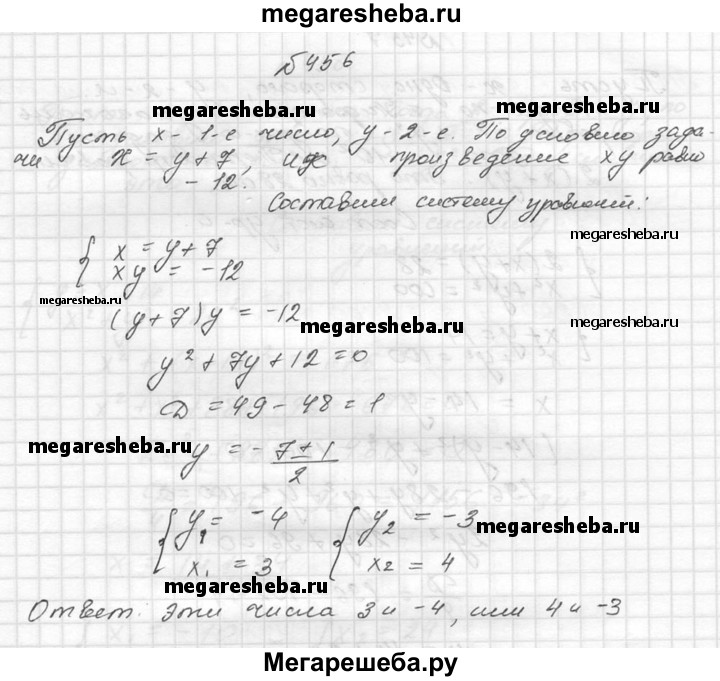 megaresheba.ru
№456
megaresheba.ru megaresheba.ru
Пусть x - 1-е число, y - 2-е. По условию зада-
чи x = y + 7, их произведение xy равно
-12.
Составим систему уравнений:
x = y + 7
xy = -12
megaresheba.ru
megaresheba.ru
(y + 7)y = -12
megaresheba.ru megaresheba.ru
y² + 7y + 12 = 0
D = 49 - 48 = 1
megaresheba.ru
y = - 7 ± 1 / 2
y₁ = -4 y₂ = -3
megaresheba.ru
x₁ = 3 x₂ = 4
megaresheba.ru
Ответ: эти числа 3 и -4, или 4 и -3
Мегарешеба.ру